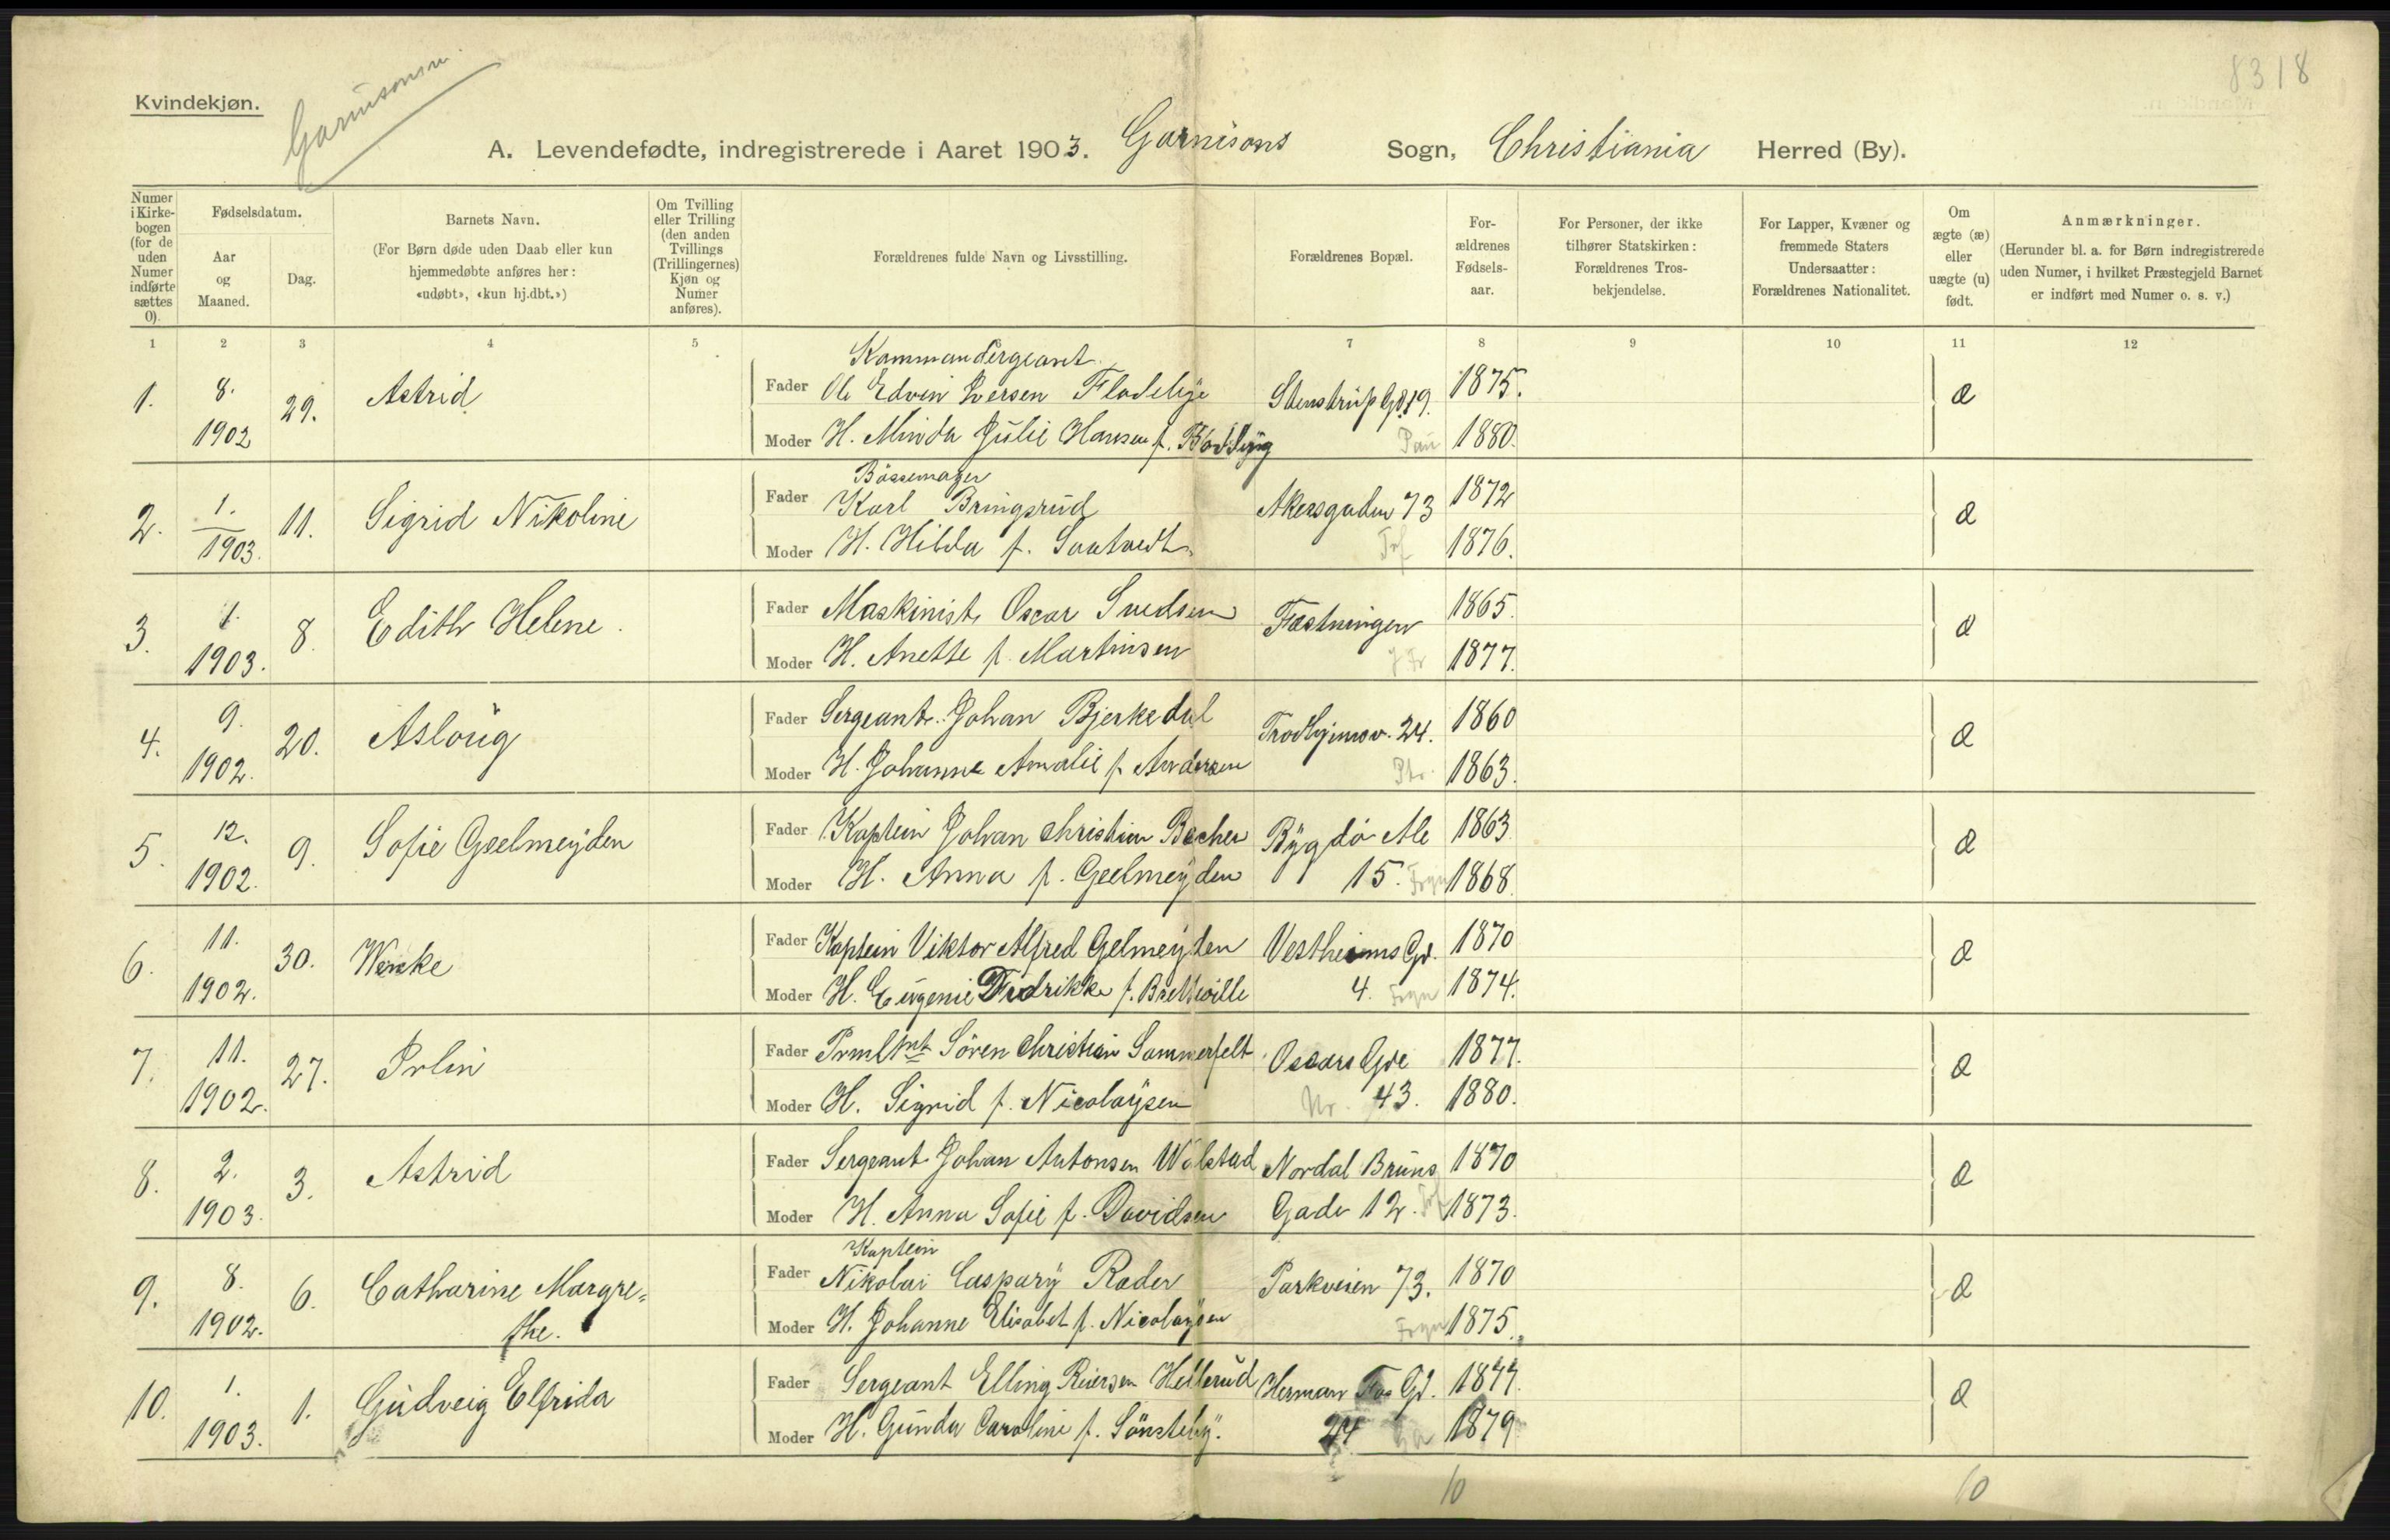 8318
Kvindekjøn.
Garnisons
A. Levendefødte, indregistrerede i Aaret 1903. Garnisons Sogn, Christiania Herred (By).
Numer i Kirkebogen (for de uden Numer indførte sættes 0).
Fødselsdatum.
Aar og Maaned.
Dag.
Barnets Navn.
(For Børn døde uden Daab eller kun hjemmedøbte anføres her: «udøbt», «kun hj.dbt.»)
Om Tvilling eller Trilling (den anden Tvillings (Trillingernes) Kjøn og Numer anføres).
Forældrenes fulde Navn og Livsstilling.
Forældrenes Bopæl.
Forældrenes Fødselsaar.
For Personer, der ikke tilhører Statskirken: Forældrenes Trosbekjendelse.
For Lapper, Kvæner og fremmede Staters Undersaatter: Forældrenes Nationalitet.
Om ægte (æ) eller uægte (u) født.
Anmærkninger.
(Herunder bl. a. for Børn indregistrerede uden Numer, i hvilket Præstegjeld Barnet er indført med Numer o. s. v.)
1 2 3 4 5 7 8 9 10 11 12
1. 8. 1902 29. Astrid
Fader Ole Edvin Iversen Fladebye 1875.
Moder H. Minda Julie Hansen f. 1880.
æ
2. 1. 1903. 11. Sigrid Nikoline
Bössemager
Fader Karl Bringsrud Akersgaden 73 1872
Moder H. Hilda f. 1876.
æ
3. 1. 1903. 8. Edith Helene.
Fader Maskinist Oscar Svedsen Fæstningen 1865.
Moder H. Anette f. Martinsen 1877.
æ
4. 9. 1902. 20. Aslöug
Fader Sergeant Johan Bjerkedal 24. 1860
Moder H. Johanne Amalie f. Andersen 1863.
æ
5. 12. 1902. 9. Sofie Geelmeyden
Fader Kaptein Johan Christian Bocher Bygdö Ale 1863
Moder H. Anna f. Geelmeyden 15. Frgn 1868.
æ
6. 11. 1902. 30. Wenke
Fader Kaptein Viktor Alfred Gelmeyden Vestheims Gd. 1870
Moder H. Eugenie Fredrikke f. Bretteville 4. Frgn 1874.
æ
7. 11. 1902. 27. Irlin
Fader Prmltnt Sören Christian Sommerfelt Oscars Gde 1877.
Moder H. Sigrid f. Nicolaysen Ur. 43. 1880.
æ
8. 2. 1903. 3. Astrid
Fader Sergeant Johan Antonsen Wolstad Nordal Bruns 1870
Moder H. Anna Sofie f. Davidsen Gade 12. 1873.
æ
9. 8. 1902. 6. Catharine Margre=
the.
Kaptein
Fader Nikolai Caspary Rader Parkveien 73. 1870
Moder H. Johanne Elisabet f. Nicolaysen Frgn 1875.
æ
10. 1. 1903. 1. Gudveig Elfrida
Fader Sergeant Elling Reiersen Hellerud Herman Fos Gd. 1877.
Moder H. Gunda Caroline f. Sönsteby. 24 1879
æ
10 10